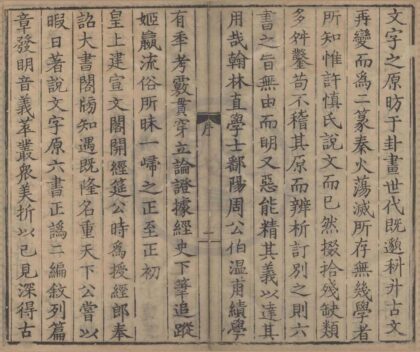 文字之原昉于卦畫世代既邈科斗古文
再變而為二篆秦火蕩滅所存無幾學者
所知惟許慎氏說文而已然掇拾殘缺類
多件鑿苟不稽其原而辨析訂別之則六
書之旨無由而明又惡能精其義以達其
用哉翰林直學士鄱陽周公伯溫甫績學
序
二
有秊考覈貫穿立論證據經史下筆追蹤
姬嬴流俗所昧一歸之正至正初
皇上建宣文閣開經筵公時為授經郎奉
詔大書閣牓知遇既隆名重天下公嘗以
暇日著說文字原六書正譌二編敘列篇
章發明音義萃叢衆美折以己見深得古